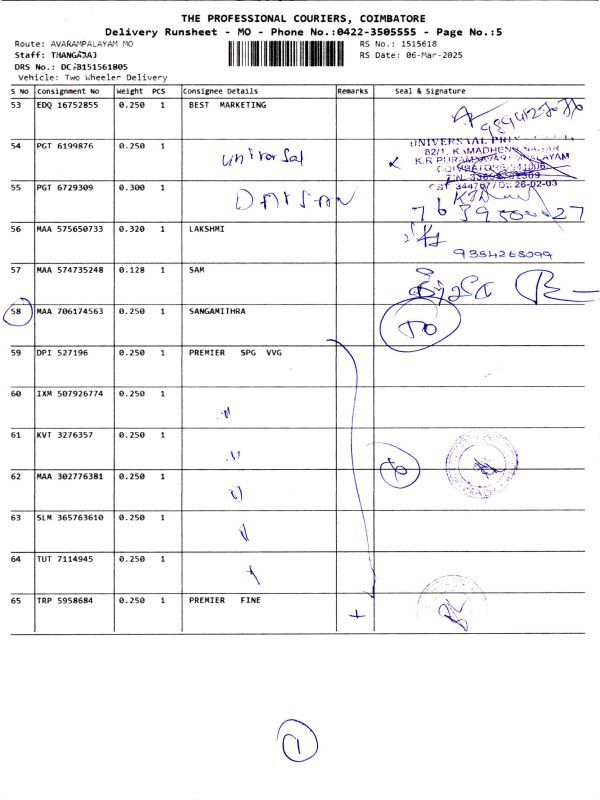 THE PROFESSIONAL COURIERS, COIMBATORE
Delivery Runsheet - MO - Phone No.:0422-3505555 - Page No.:5
Route: AVARAMPALAYAM MO
RS No.: 1515618
Staff: THANGARAJ
RS Date: 06-Mar-2025
DRS No.: DCJB151561805
Vehicle: Two Wheeler Delivery
S No Consignment No Weight PCS Consignee Details Remarks Seal & Signature
53 EDQ 16752855 0.250 1 BEST MARKETING
54 PGT 6199876 0.250 1 universal
UNIVERSAL
82/1, KAMADHENU NAGAR
55 PGT 6729309 0.300 1 DARSAN
56 MAA 575650733 0.320 1 LAKSHMI
9354268099
57 MAA 574735248 0.128 1 SAM
58 MAA 706174563 0.250 1 SANGAMITHRA
59 DPI 527196 0.250 1 PREMIER SPG VVG
60 IXM 507926774 0.250 1 "
61 KVT 3276357 0.250 1 "
62 MAA 302776381 0.250 1 "
63 SLM 365763610 0.250 1 "
64 TUT 7114945 0.250 1
65 TRP 5958684 0.250 1 PREMIER FINE
1